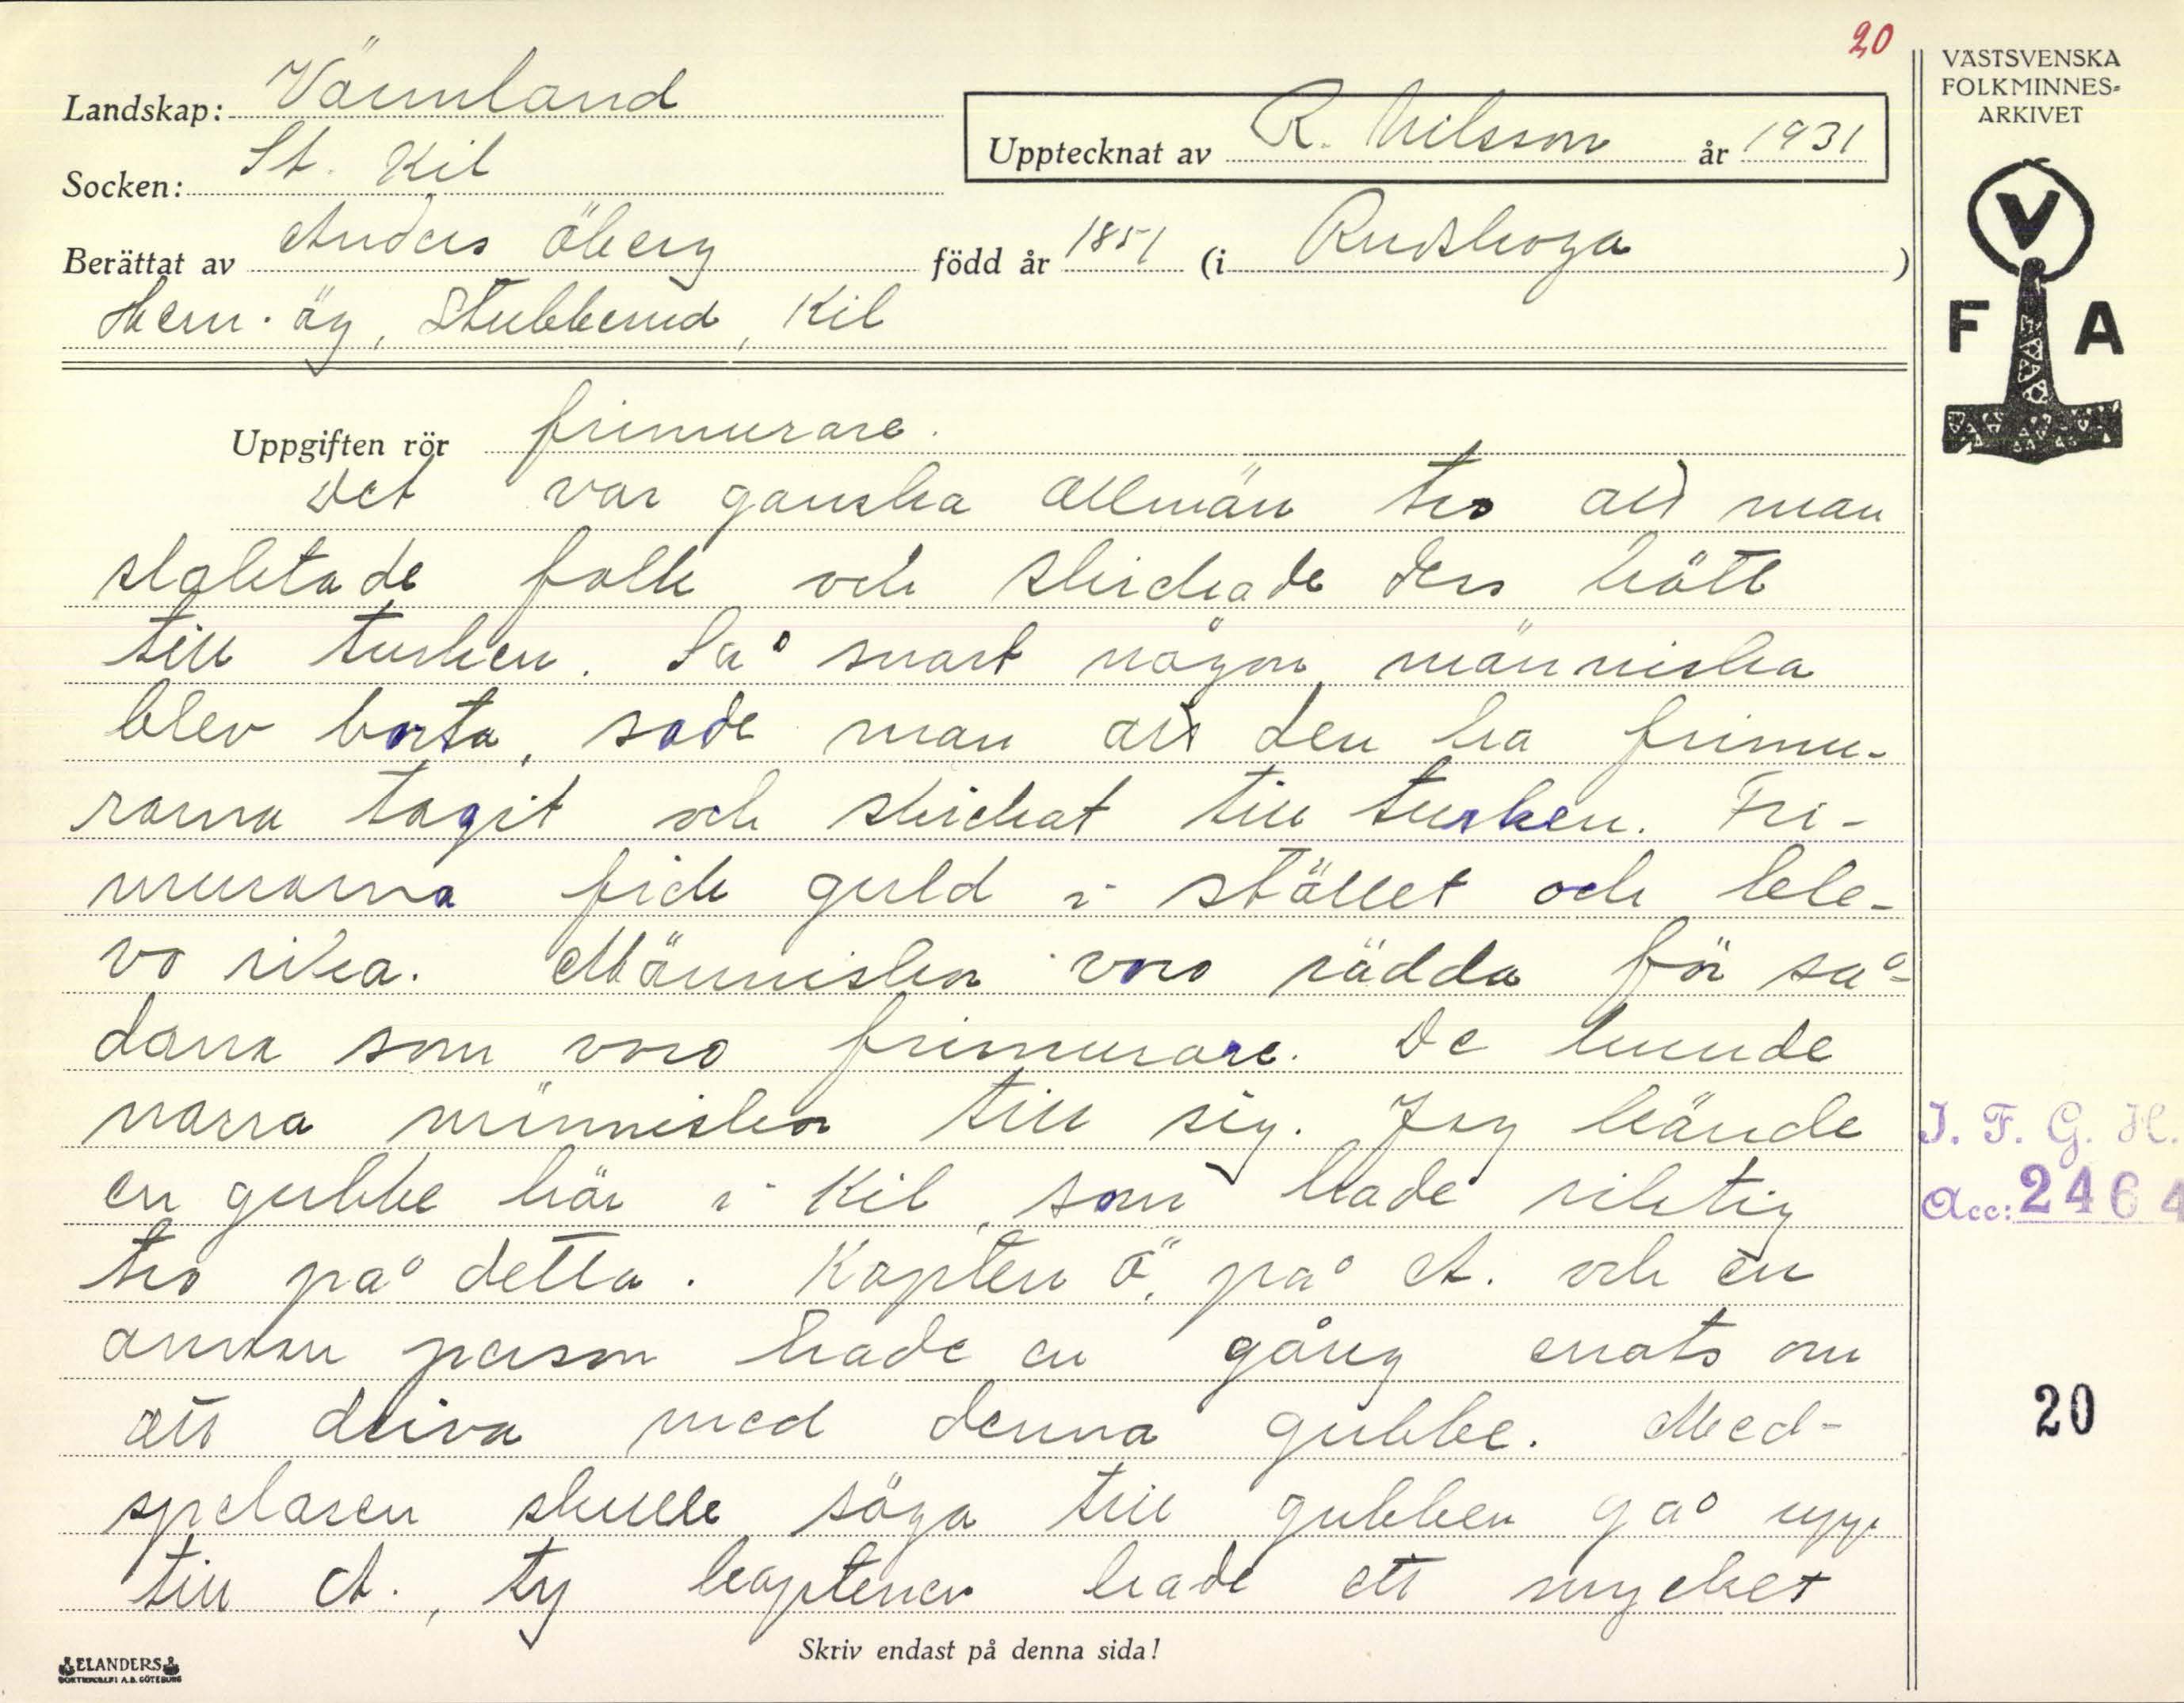 20
VÄSTSVENSKA
FOLKMINNES-
ARKIVET
Landskap: Värmland
Upptecknat av R. Nilsson år 1931
Socken: St. Kil
Berättat av Anders Öberg född år 1851 (i Rudskoga)
Hem.äg, Stubberud, Kil
V
F A
Uppgiften rör frimurare.
Det var ganska allmän tro att man
slaktade folk och skickade dess kött
till turken. Så snart någon människa
blev borta, sade man att den ha frimu-
rarna tagit och skickat till turken. Fri-
murarna fick guld i stället och ble-
vo rika. Människor voro rädda för så-
dana som voro frimurare. De kunde
narra människor till sig. Jag kände
en gubbe här i Kil, som hade riktig
tro på detta. Kapten Ö. på A. och en
annan person hade en gång enats om
att driva med denna gubbe. Med-
spelaren skulle säga till gubben gå upp
till A., ty kaptenen hade ett mycket
I. F. G. H.
Acc: 2464
20
Skriv endast på denna sida!
ELANDERS
BOKTRYCKERI A.B. GÖTEBORG